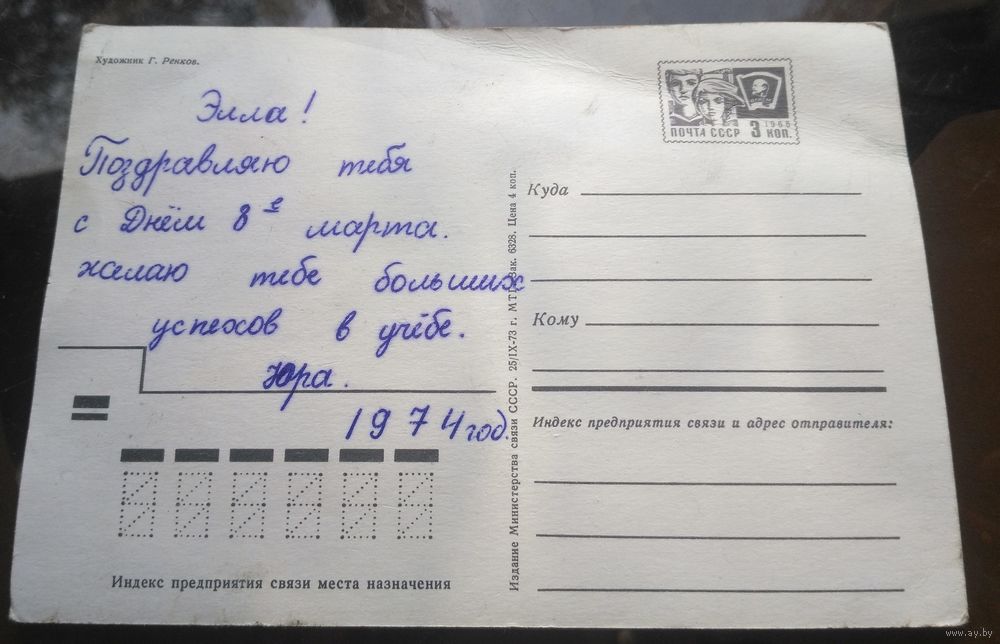 Художник Г. Ренков.
Элла!
Поздравляю тебя
с Днём 8е марта.
желаю тебе больших
успехов в учёбе.
Юра.
1974 год.
Индекс предприятия связи места назначения
Издание Министерства связи СССР. 25/IX-73 г. Зак. 6328. Цена 4 коп.
1966
ПОЧТА СССР 3 КОП.
Куда
Кому
Индекс предприятия связи и адрес отправителя:
www.ay.by